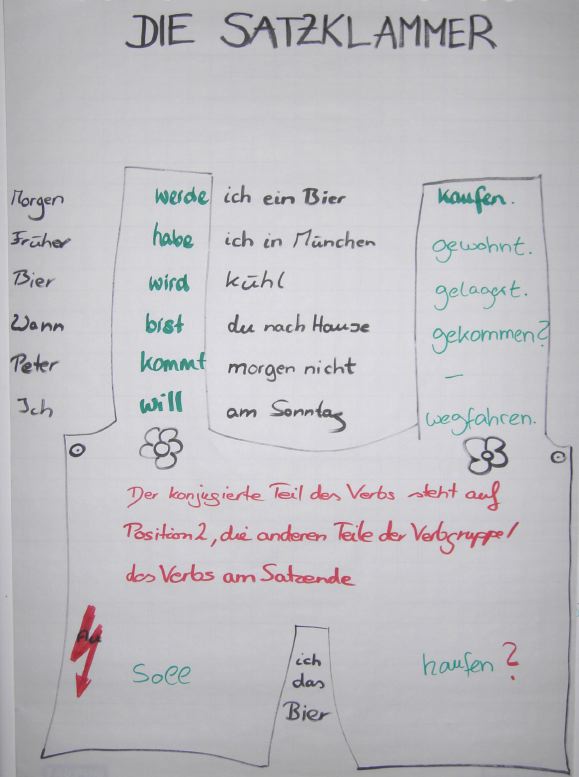 DIE SATZKLAMMER
Morgen werde ich ein Bier kaufen.
Früher habe ich in München gewohnt.
Bier wird kühl gelagert.
Wann bist du nach Hause gekommen?
Peter kommt morgen nicht –
Ich will am Sonntag wegfahren.
Der konjugierte Teil des Verbs steht auf
Position 2, die anderen Teile der Verbgruppe/
des Verbs am Satzende
Soll ich das Bier kaufen?